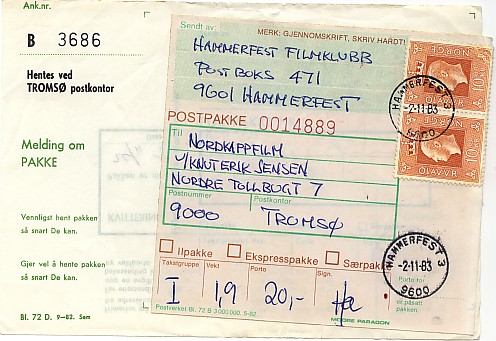 Ank.nr.
B 3686
Hentes ved
TROMSØ postkontor
Melding om
PAKKE
Vennligst hent pakken
så snart De kan.
Gjer vel å hente pakken
så snart De kan.
Bl. 72 D. 9-82. Sem
Sendt av:
MERK: GJENNOMSKRIFT, SKRIV HARDT!
HAMMERFEST FILMKLUBB
POSTBOKS 471
9601 HAMMERFEST
POSTPAKKE 0014889
Til
NORDKAPPFILM
V/KNUTERIK JENSEN
NORDRE TOLLBUGT 7
Postnummer Postkontor
9000 TROMSØ
Ilpakke Ekspresspakke Særpakke
Takstgruppe Vekt Porto Sign.
I 1,9 20,-
Postverket Bl. 72 B 3 000 000. 5-82.
MOORE PARAGON
på satt.
pakken.
NORGE
OLAV V R
NORGE
OLAV V R
HAMMERFEST 3
-2-11-83
9600
HAMMERFEST 3
-2-11-83
9600